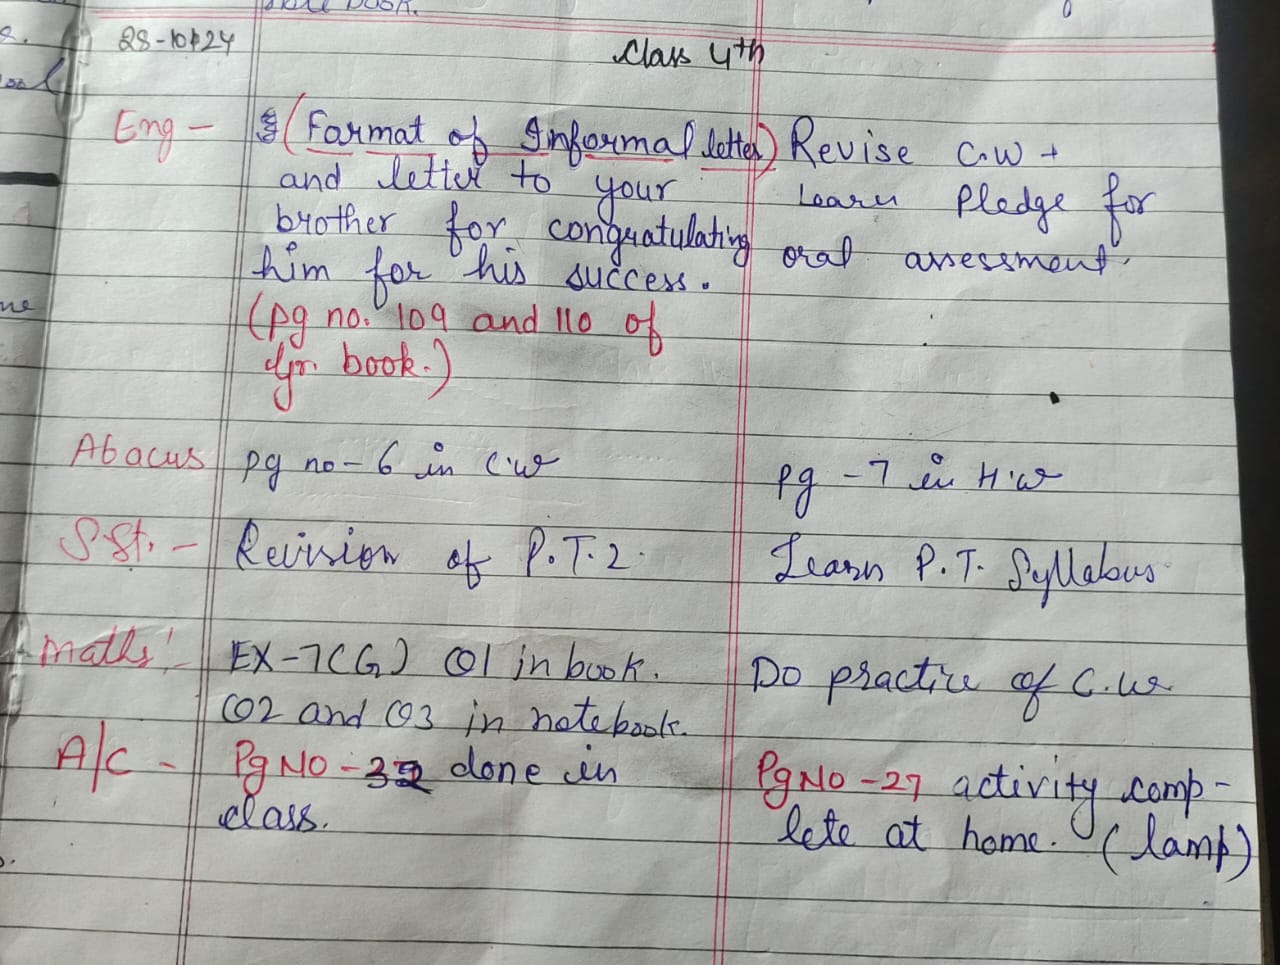 book.
28-10-24
Class 4th
Eng - (Farmat of Informal letter) Revise C.W +
and letter to your learn Pledge for
brother for congratulating oral assessment.
him for his success.
(pg no. 109 and 110 of
gr. book.)
Abacus pg no - 6 in C.W pg - 7 in H.W
S.St. - Revision of P.T.2. Learn P.T. Syllabus
Maths - EX-7(G) Q1 in book. Do practice of C.W
Q2 and Q3 in notebook.
A/C - Pg NO - 32 done in Pg NO - 27 activity comp-
class. lete at home. (lamp)